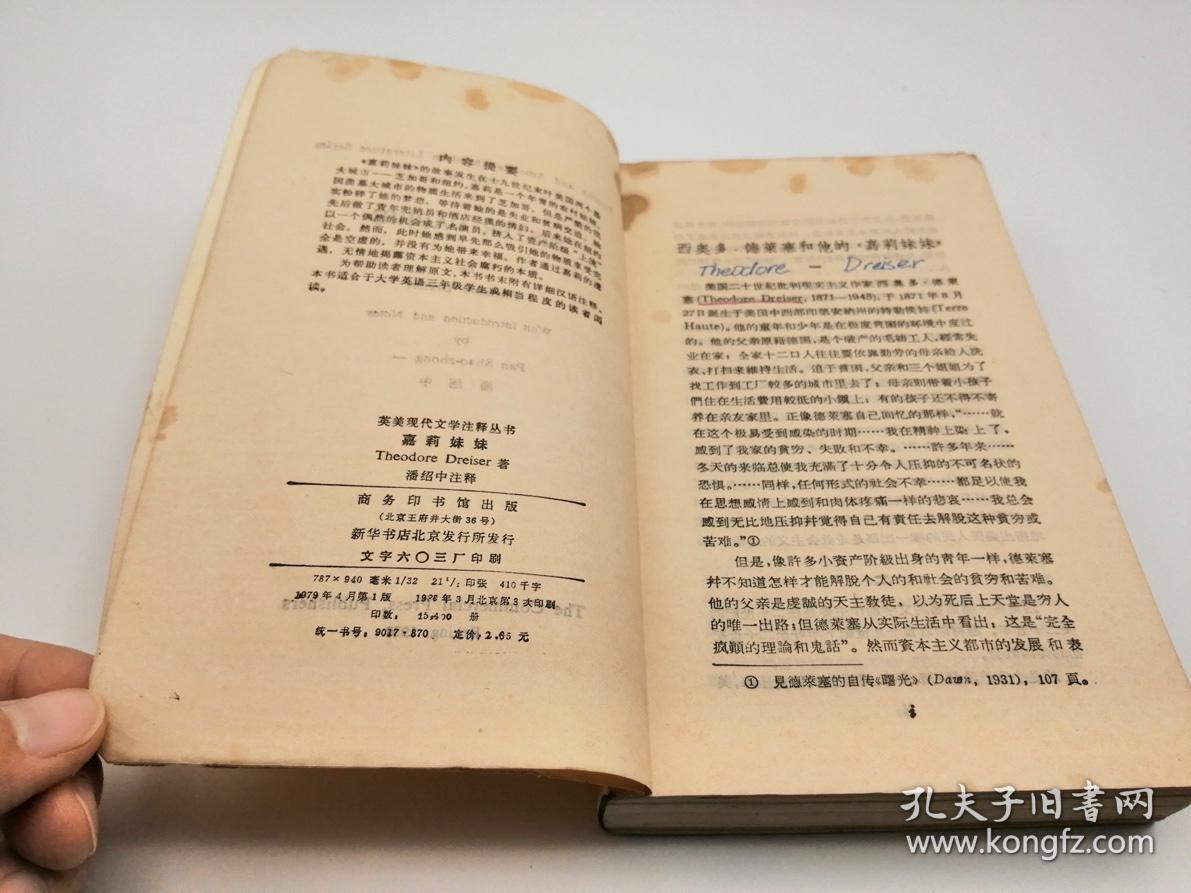 内容提要
《嘉莉妹妹》的故事发生在十九世纪末叶美国两个最
大城市——芝加哥和纽约。嘉莉是一个年青的农村姑娘,
因羡慕大城市的物质生活来到了芝加哥,但是严酷的现
实粉碎了她的梦想,等待着她的是失业和贫病交迫。她
先后做了青年兜销员和酒店经理的情妇,后来她在纽约
以一个偶然的机会成了名演员,挤入了资产阶级“上流”
社会。然而,此时她感到早先那么吸引她的物质享受完
全是空虚的,并没有为她带来幸福。作者通过嘉莉的遭
遇,无情地揭露资本主义社会腐朽的本质。
为帮助读者理解原文,本书书末附有详细汉语注释。
本书适合于大学英语三年级学生或相当程度的读者阅
读。
英美现代文学注释丛书
嘉莉妹妹
Theodore Dreiser 著
潘绍中注释
商务印书馆出版
(北京王府井大街36号)
新华书店北京发行所发行
文字六〇三厂印刷
787×940 毫米 1/32 21 1/2 印张 410 千字
1979年4月第1版 1986年3月北京第3次印刷
印数: 册
统一书号:9017·870 定价:2.65元
西奥多·德莱塞和他的《嘉莉妹妹》
Theodore – Dreiser
美国二十世紀批判現实主义作家西奥多·德萊
塞(Theodore Dreiser, 1871—1945),于1871年8月
27日誕生于美国中西部印第安納州的特勒候特(Terre
Haute)。他的童年和少年是在极度貧困的环境中度过
的。他的父亲原籍德国,是个破产的毛紡工人,經常失
业在家;全家十二口人往往要依靠勤劳的母亲給人洗
衣、打扫来維持生活。迫于貧困,父亲和三个姐姐为了
找工作到工厂較多的城市里去了;母亲則带着小孩子
們住在生活費用較低的小鎮上;有的孩子还不得不寄
养在亲友家里。正像德萊塞自己回忆的那样,“……就
在这个极易受到感染的时期……我在精神上染上了、
感到了我家的貧穷、失敗和不幸。……許多年来……
冬天的来临总使我充滿了十分令人压抑的不可名状的
恐惧。……同样,任何形式的社会不幸……都足以使我
在思想感情上感到和肉体疼痛一样的悲哀……我总会
感到无比地压抑幷覚得自己有責任去解脫这种貧穷或
苦难。”①
但是,像許多小資产阶級出身的青年一样,德萊塞
幷不知道怎样才能解脫个人的和社会的貧穷和苦难。
他的父亲是虔誠的天主教徒,以为死后上天堂是穷人
的唯一出路;但德萊塞从实际生活中看出,这是“完全
疯顚的理論和鬼話”。然而資本主义都市的发展和表
① 見德萊塞的自传《曙光》(Dawn, 1931), 107頁。
i
孔夫子旧書网
www.kongfz.com